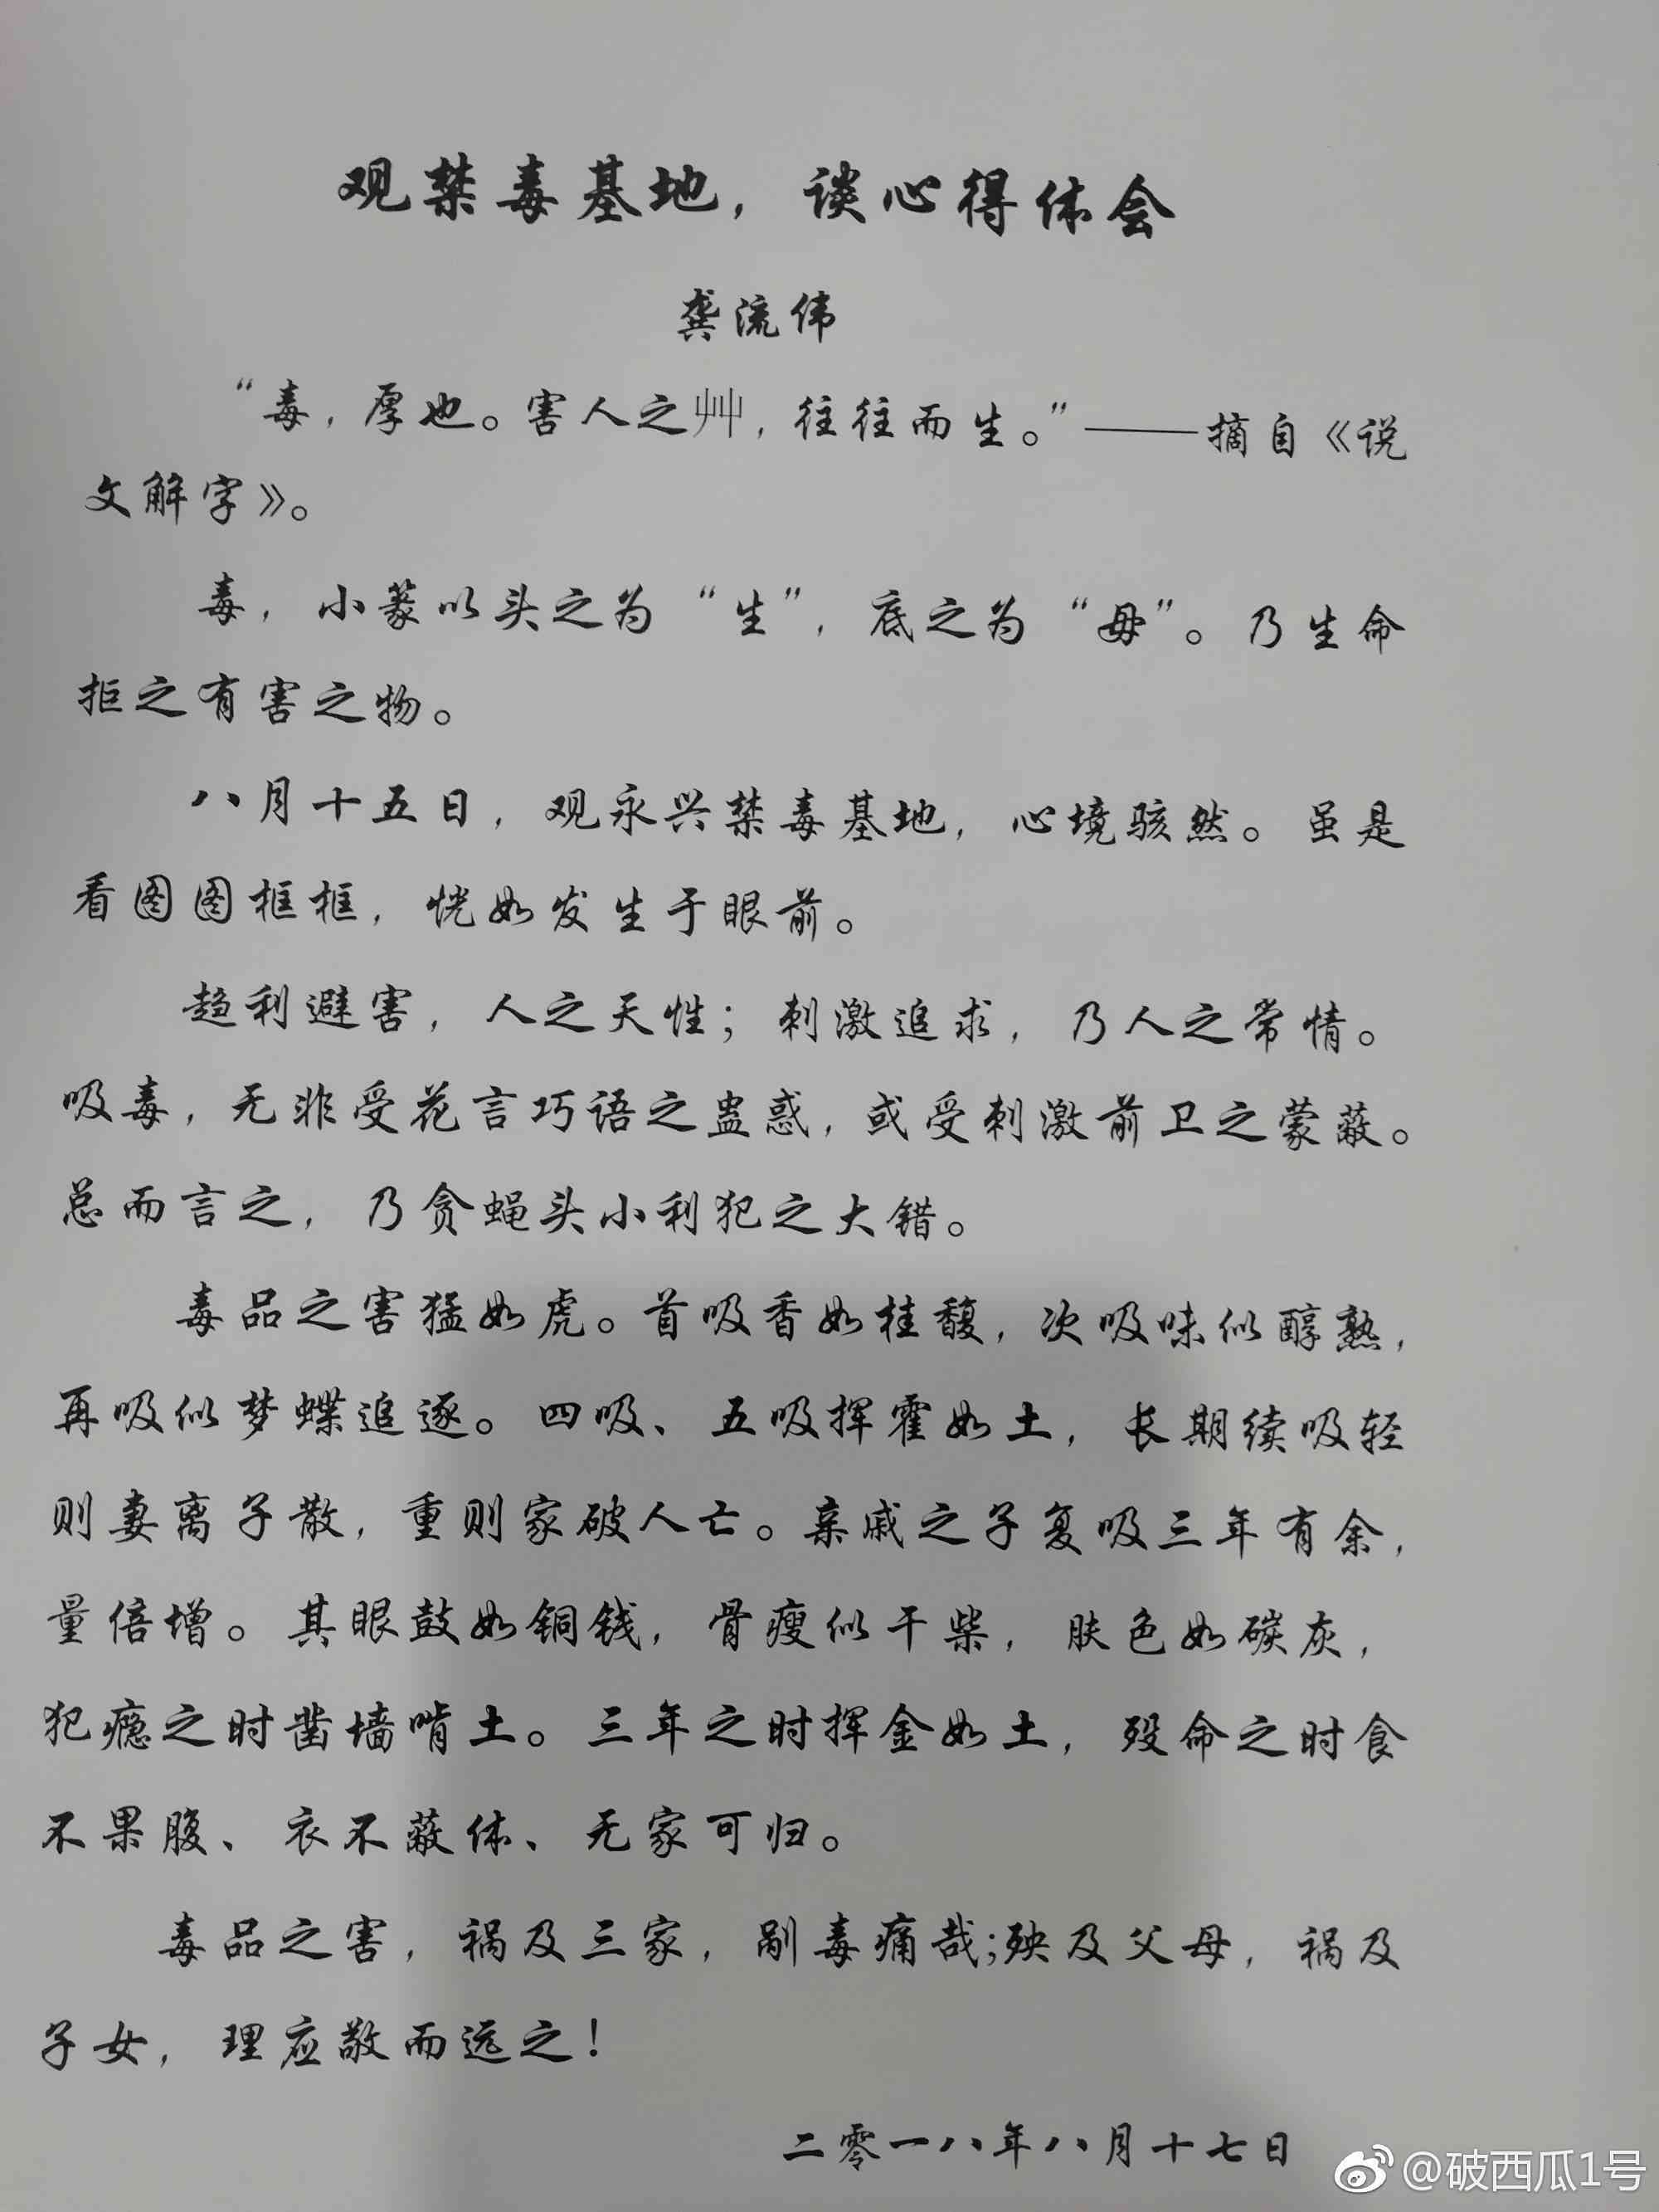 观禁毒基地，谈心得体会
龚流伟
“毒，厚也。害人之艸，往往而生。”——摘自《说
文解字》。
毒，小篆以头之为“生”，底之为“毋”。乃生命
拒之有害之物。
八月十五日，观永兴禁毒基地，心境骇然。虽是
看图图框框，恍如发生于眼前。
趋利避害，人之天性；刺激追求，乃人之常情。
吸毒，无非受花言巧语之蛊惑，或受刺激前卫之蒙蔽。
总而言之，乃贪蝇头小利犯之大错。
毒品之害猛如虎。首吸香如桂馥，次吸味似醇熟，
再吸似梦蝶追逐。四吸、五吸挥霍如土，长期续吸轻
则妻离子散，重则家破人亡。亲戚之子复吸三年有余，
量倍增。其眼鼓如铜钱，骨瘦似干柴，肤色如碳灰，
犯瘾之时凿墙啃土。三年之时挥金如土，殁命之时食
不果腹、衣不蔽体、无家可归。
毒品之害，祸及三家，剐毒痛哉;殃及父母，祸及
子女，理应敬而远之！
二零一八年八月十七日
@破西瓜1号